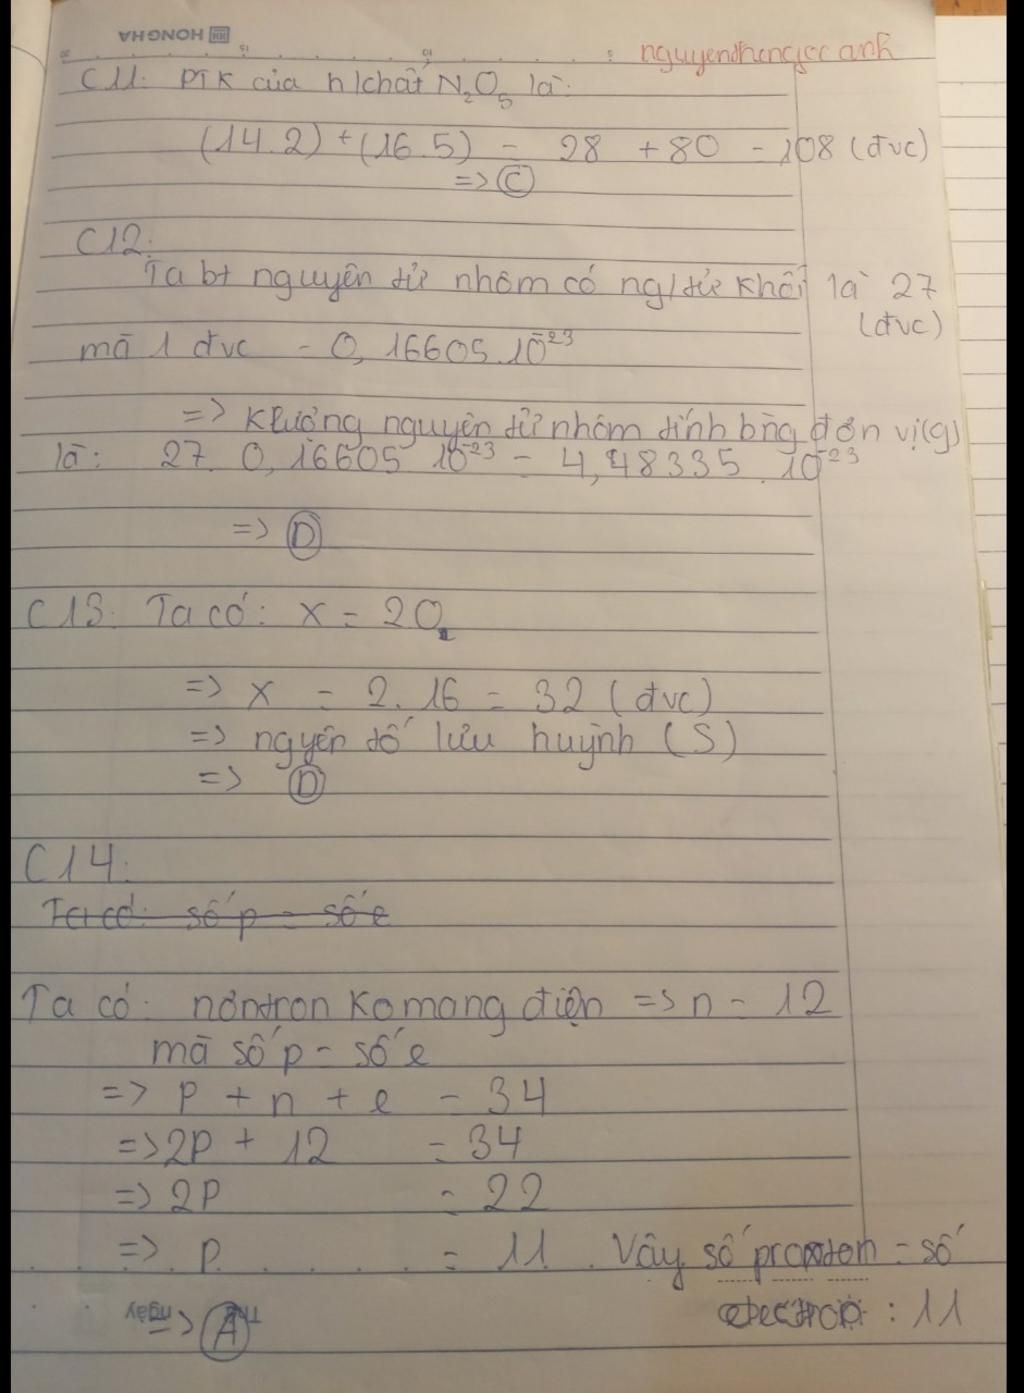 HONGHA
nguyenthengocc anh
C11: PTK của h/chất N₂O₅ là:
(14.2) + (16.5) = 28 + 80 = 108 (đvc)
=> C
C12:
Ta bt nguyên tử nhôm có ng/tử khối là 27
(đvc)
mà 1 đvc = 0,16605.10⁻²³
=> Klượng nguyên tử nhôm tính bằng đơn vị(g)
là: 27. 0,16605 10⁻²³ = 4,48335.10⁻²³
=> D
C13: Ta có: x = 2O
=> x = 2.16 = 32 (đvc)
=> ngyên tố lưu huỳnh (S)
=> D
C14:
Ta có: số p = số e
Ta có: nơntron Ko mang điện => n = 12
mà số p = số e
=> p + n + e = 34
=> 2p + 12 = 34
=> 2p = 22
=> p = 11. Vậy số proton = số
electron : 11
Thứ
ngày
=> A